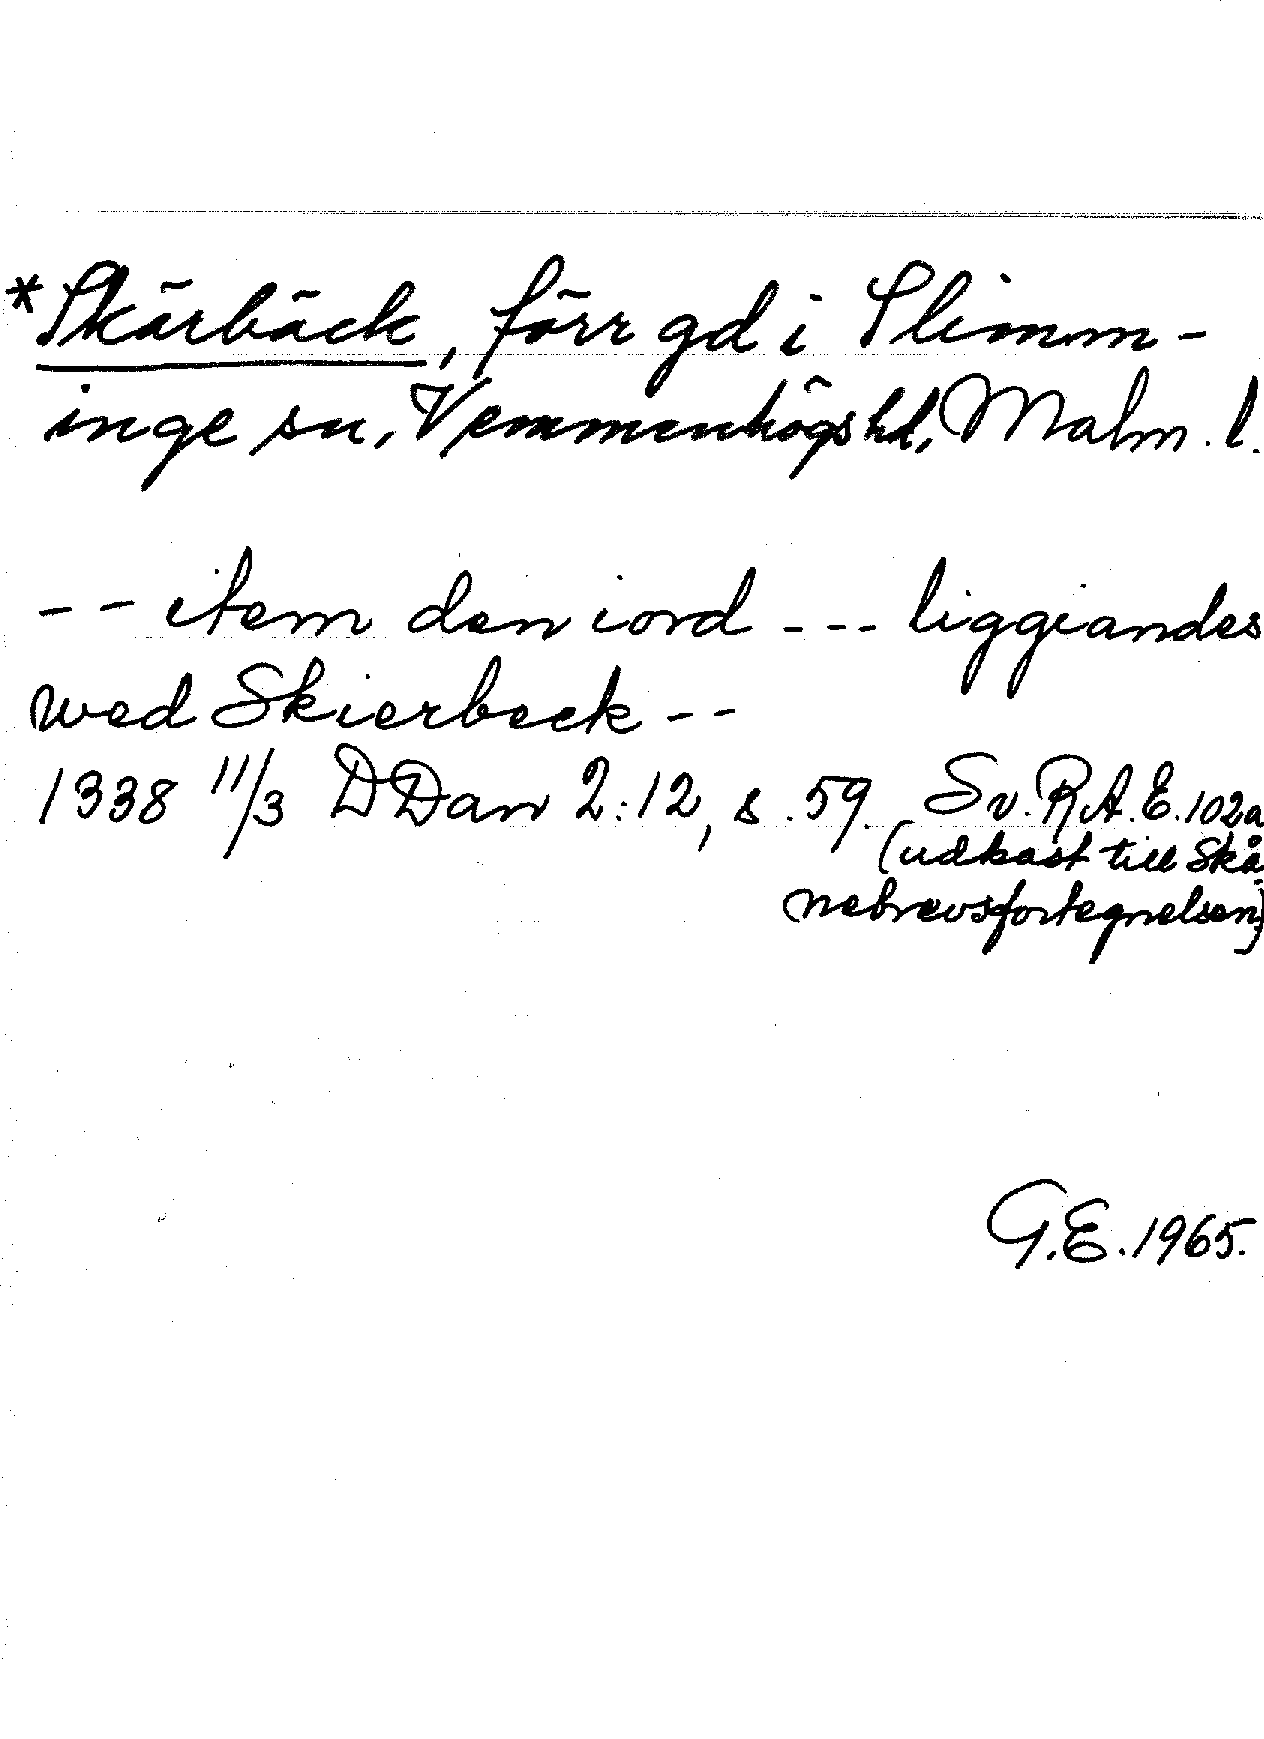 *Skärbäck, förr gd i Slimm-
inge sn, Vemmenhögs hd, Malm. l.
-- item den iord --- liggiandes
wed Skierbeck --
1338 11/3 DDan 2:12, s. 59. Sv. R.A. E. 102a
(udkast till Skå-
nebrevsfortegnelsen)
G.E. 1965.